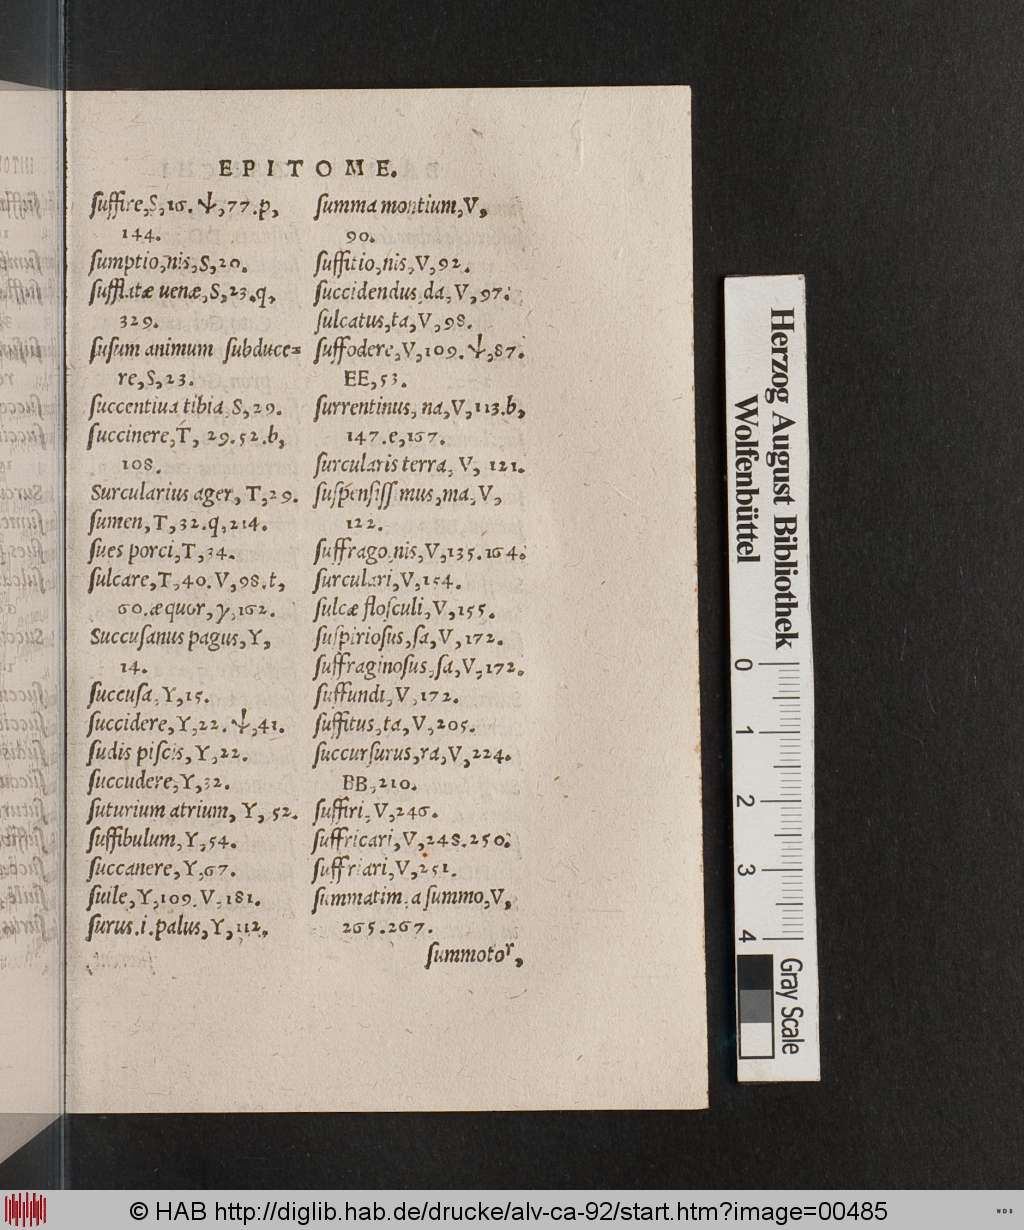 EPITOME.
ſuffire,S,16.Ψ,77.p,
144.
ſumptio,nis,S,20.
ſufflatæ uenæ,S,23.q,
329.
ſuſum animum ſubduce=
re,S,23.
ſuccentiua tibia,S,29.
ſuccinere,T, 29.52.b,
108.
Surcularius ager, T,29.
ſumen,T,32.q,214.
ſues porci,T,34.
ſulcare,T,40.V,98.t,
60.æquor,y,162.
Succuſanus pagus,Y,
14.
ſuccuſa,Y,15.
ſuccidere,Y,22.Ψ,41.
ſudis piſcis,Y,22.
ſuccudere,Y,32.
ſuturium atrium, Y, 52.
ſuffibulum,Y,54.
ſuccanere,Y,67.
ſuile,Y,109.V,181.
ſurus.i.palus,Y,112,
ſumma montium,V,
90.
ſuffitio,nis,V,92.
ſuccidendus,da,V,97.
ſulcatus,ta,V,98.
ſuffodere,V,109.Ψ,87.
EE,53.
ſurrentinus, na,V,113.b,
147.e,167.
ſurcularis terra, V, 121.
ſuſpenſiſſimus,ma,V,
122.
ſuffrago,nis,V,135.164.
ſurculari,V,154.
ſulcæ floſculi,V,155.
ſuſpirioſus,ſa,V,172.
ſuffraginoſus,ſa,V,172.
ſuffundi,V,172.
ſuffitus,ta,V,205.
ſuccurſurus,ra,V,224.
BB,210.
ſuffiri,V,246.
ſuffricari,V,248.250.
ſuffriari,V,251.
ſummatim,a ſummo,V,
265.267.
ſummotor,
Herzog August Bibliothek
Wolfenbüttel
0 1 2 3 4
Gray Scale
© HAB http://diglib.hab.de/drucke/alv-ca-92/start.htm?image=00485